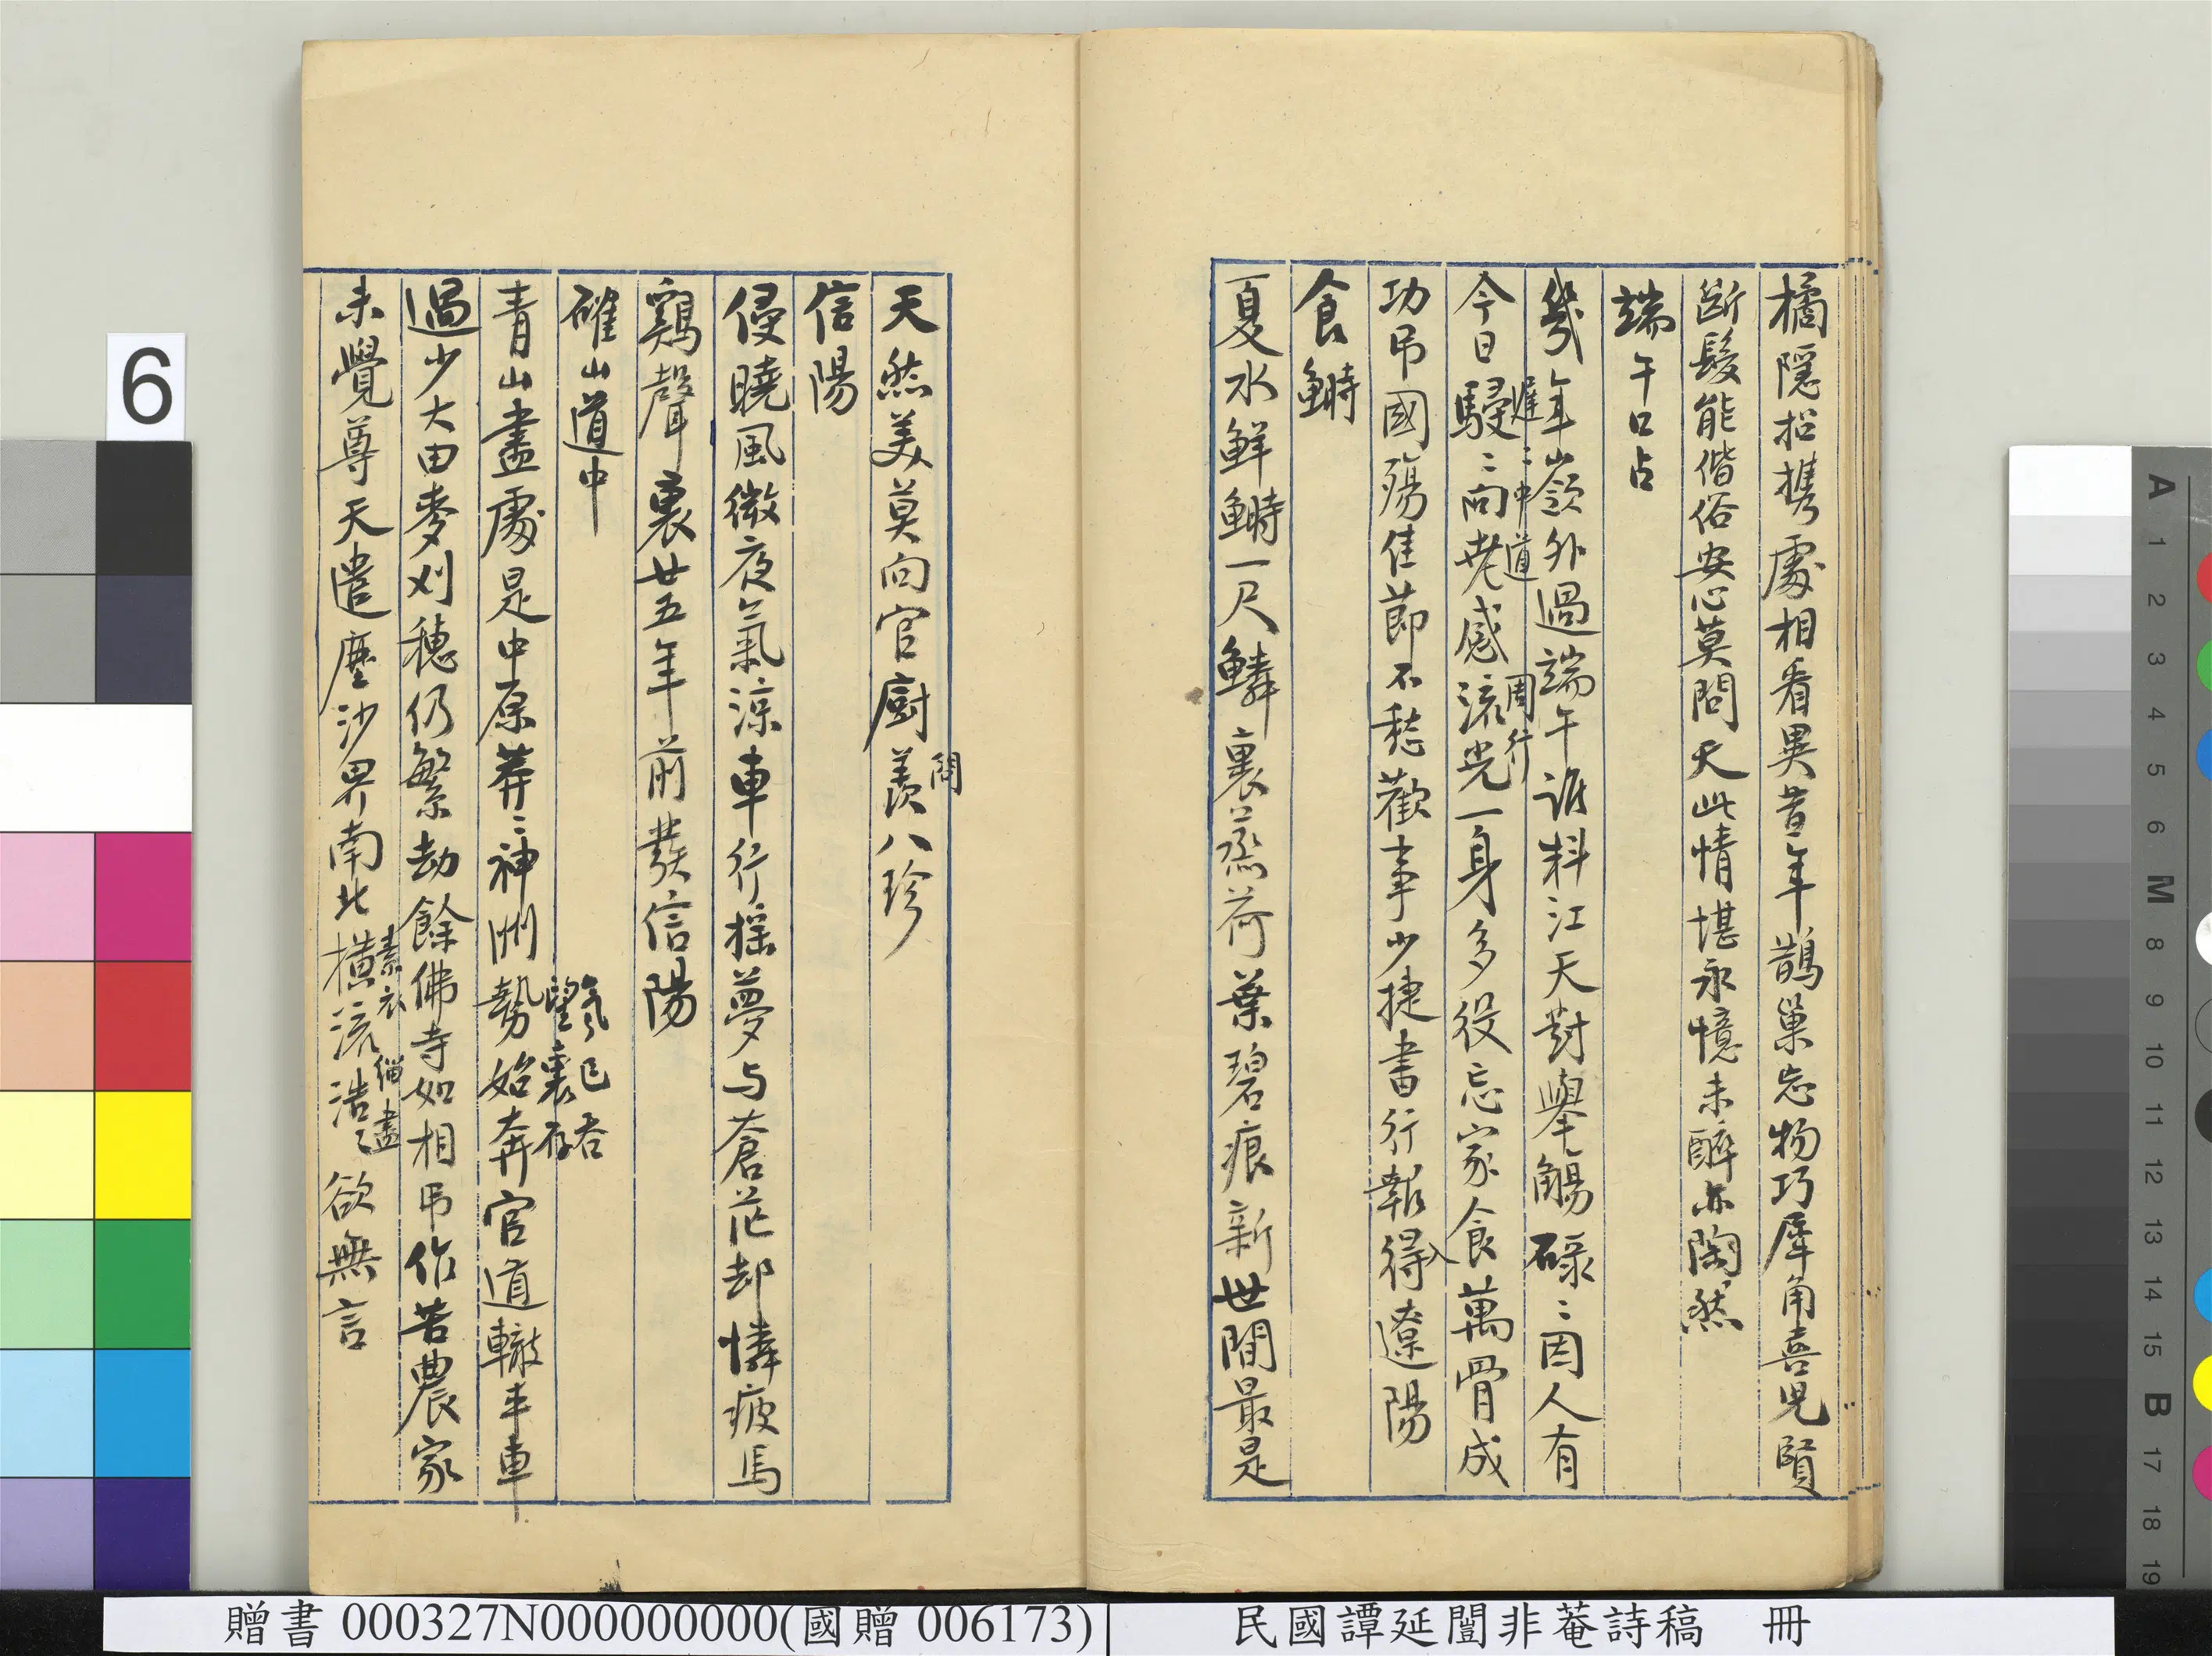 橘隱招携處相看異昔年鵲巢忘物巧犀角喜兒賢
斷髮能偕俗安心莫問天此情堪永憶未醉亦陶然
端午口占
幾年嶺外過端午誰料江天對舉觴碌〻因人有
遲〻中道
周行
今日駸〻向老感流光一身多役忘家食萬骨成
功弔國殤佳節不愁歡事少捷書行報得遼陽
入
食鰣
夏水鮮鰣一尺鱗裹蒸荷葉碧痕新世間最是
天然美莫向官廚羨八珍
鬥
信陽
侵曉風微夜氣涼車行搖夢与蒼茫却憐疲馬
鷄聲裏廿五年前發信陽
確山道中
氣已吞
望裏存
青山盡處是中原莽〻神洲勢始奔官道轍丰車
過少大田麥刈穗仍繁劫餘佛寺如相弔作苦農家
素衣緇盡
未覺尊天遣塵沙界南北橫流浩〻欲無言
6
贈書 000327N000000000(國贈 006173)
民國譚延闓非菴詩稿 冊
A 1 2 3 4 5 6 M 8 9 10 11 12 13 14 15 B 17 18 19